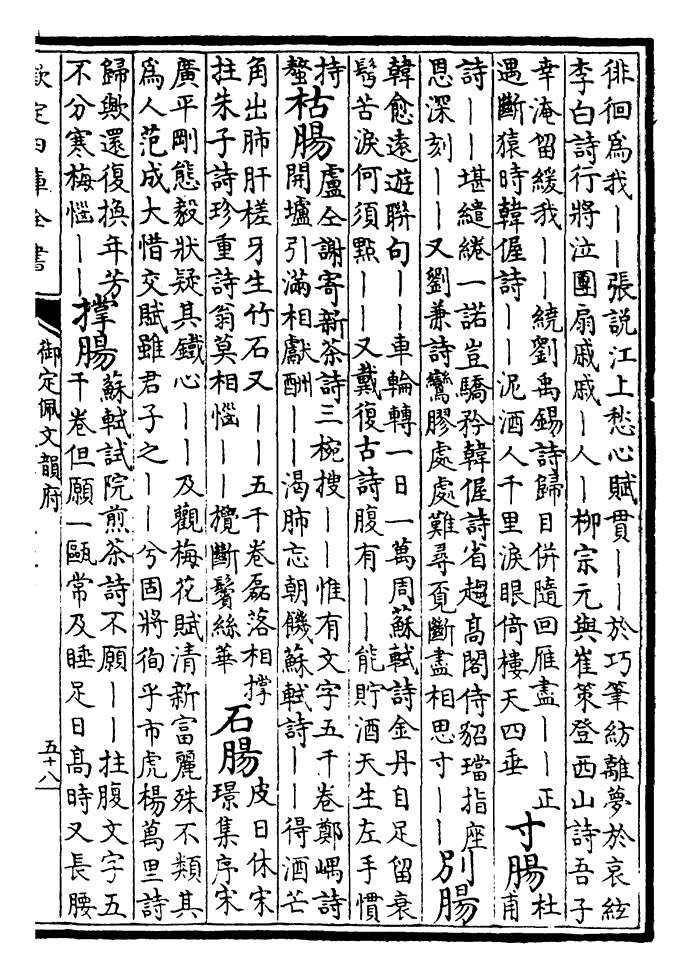 徘徊為我丨丨張説江上愁心賦貫丨丨於巧筆紡離夢於哀絃
李白詩行將泣團扇戚戚丨人丨柳宗元與崔策登西山詩吾子
幸淹留緩我丨丨繞劉禹錫詩歸目併隨回雁盡丨丨正
遇斷猿時韓偓詩丨丨泥酒人千里淚眼倚樓天四垂
寸腸
杜
甫
詩丨丨堪繾綣一諾豈驕矜韓偓詩省趨高閣侍貂璫指座
恩深刻丨丨又劉兼詩鸞膠處處難尋覔斷盡相思寸丨
別腸
韓愈遠遊聯句丨丨車輪轉一日一萬周蘇軾詩金丹自足留衰
鬂苦淚何須點丨丨又戴復古詩腹有丨丨能貯酒天生左手慣
持
螯
枯腸
盧仝謝寄新茶詩三椀搜丨丨惟有文字五千卷鄭嵎詩
開壚引滿相獻酬丨丨渴肺忘朝饑蘇軾詩丨丨得酒芒
角出肺肝槎牙生竹石又丨丨五千卷磊落相撑
拄朱子詩珍重詩翁莫相惱丨丨攪斷鬢絲華
石腸
皮日休宋
璟集序宋
廣平剛態毅狀疑其鐵心丨丨及觀梅花賦清新富麗殊不類其
為人范成大惜交賦雖君子之丨丨兮固將徇乎市虎楊萬里詩
歸歟還復換年芳
不分寒梅惱丨丨
撑腸
蘇軾試院煎茶詩不願丨丨拄腹文字五
千卷但願一甌常及睡足日高時又長腰
欽定四庫全書
御定佩文韻府
五十八